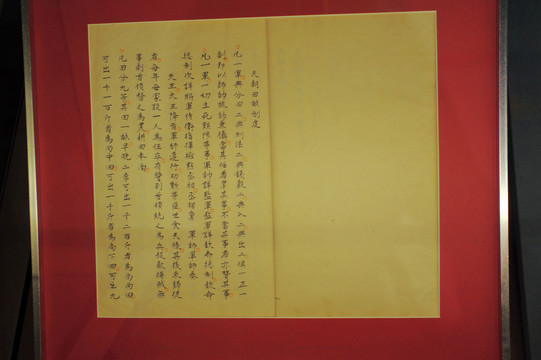 天朝田畝制度
凡一軍典分田二典刑法二典錢穀二典入二典出二俱一正一
副即以師帥旅帥兼攝當其任者掌其事不當其事者亦贊其事
凡一軍一切生死黜陟等事軍帥詳監軍監軍詳欽命總制欽命
總制次詳將軍侍衛指揮檢點丞相丞相稟軍師軍師奏
天王天王降旨軍師遵行功勳等臣世食天祿其後來歸從
者每軍每家設一人為伍卒有警則首領統之為兵殺敵捕賊無
事則首領督之為農耕田奉尚
凡田分九等其田一畝早晚二季可出一千二百斤者為尚尚田
可出一千一百斤者為尚中田可出一千斤者為尚下田可出九